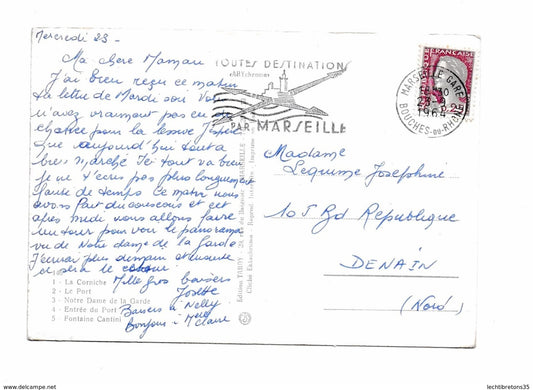 Mercredi 23 -
Ma chère Maman
J'ai bien reçu ce matin
ta lettre de Mardi soir Vous
n'avez vraiment pas eu de
chance pour la lessive J'espère
que aujourd'hui tout a
bien marché Ici tout va bien
Je ne t'écris pas plus longuement
faute de temps Ce matin nous
avons fait du couscous et cet
après midi nous allons faire
un tour pour voir le panorama
vu de Notre dame de la Garde
J'écrirai plus demain et ensuite
ce sera le
Mille gros baisers
Josette
Baisers à Nelly
Bonjour à Melle Claire
1 - La Corniche
2 - Le Port
3 - Notre Dame de la Garde
4 - Entrée du Port
5 - Fontaine Cantini
Editions TARDY, 29, rue de
MARSEILLE
TOUTES DESTINATIONS
PAR MARSEILLE
MARSEILLE GARE
23-9
1964
BOUCHES-DU-RHONE
FRANÇAISE
0,25
Madame
Lequime Joséphine
105 Bd République
DENAIN
(Nord)
lechtibretons35